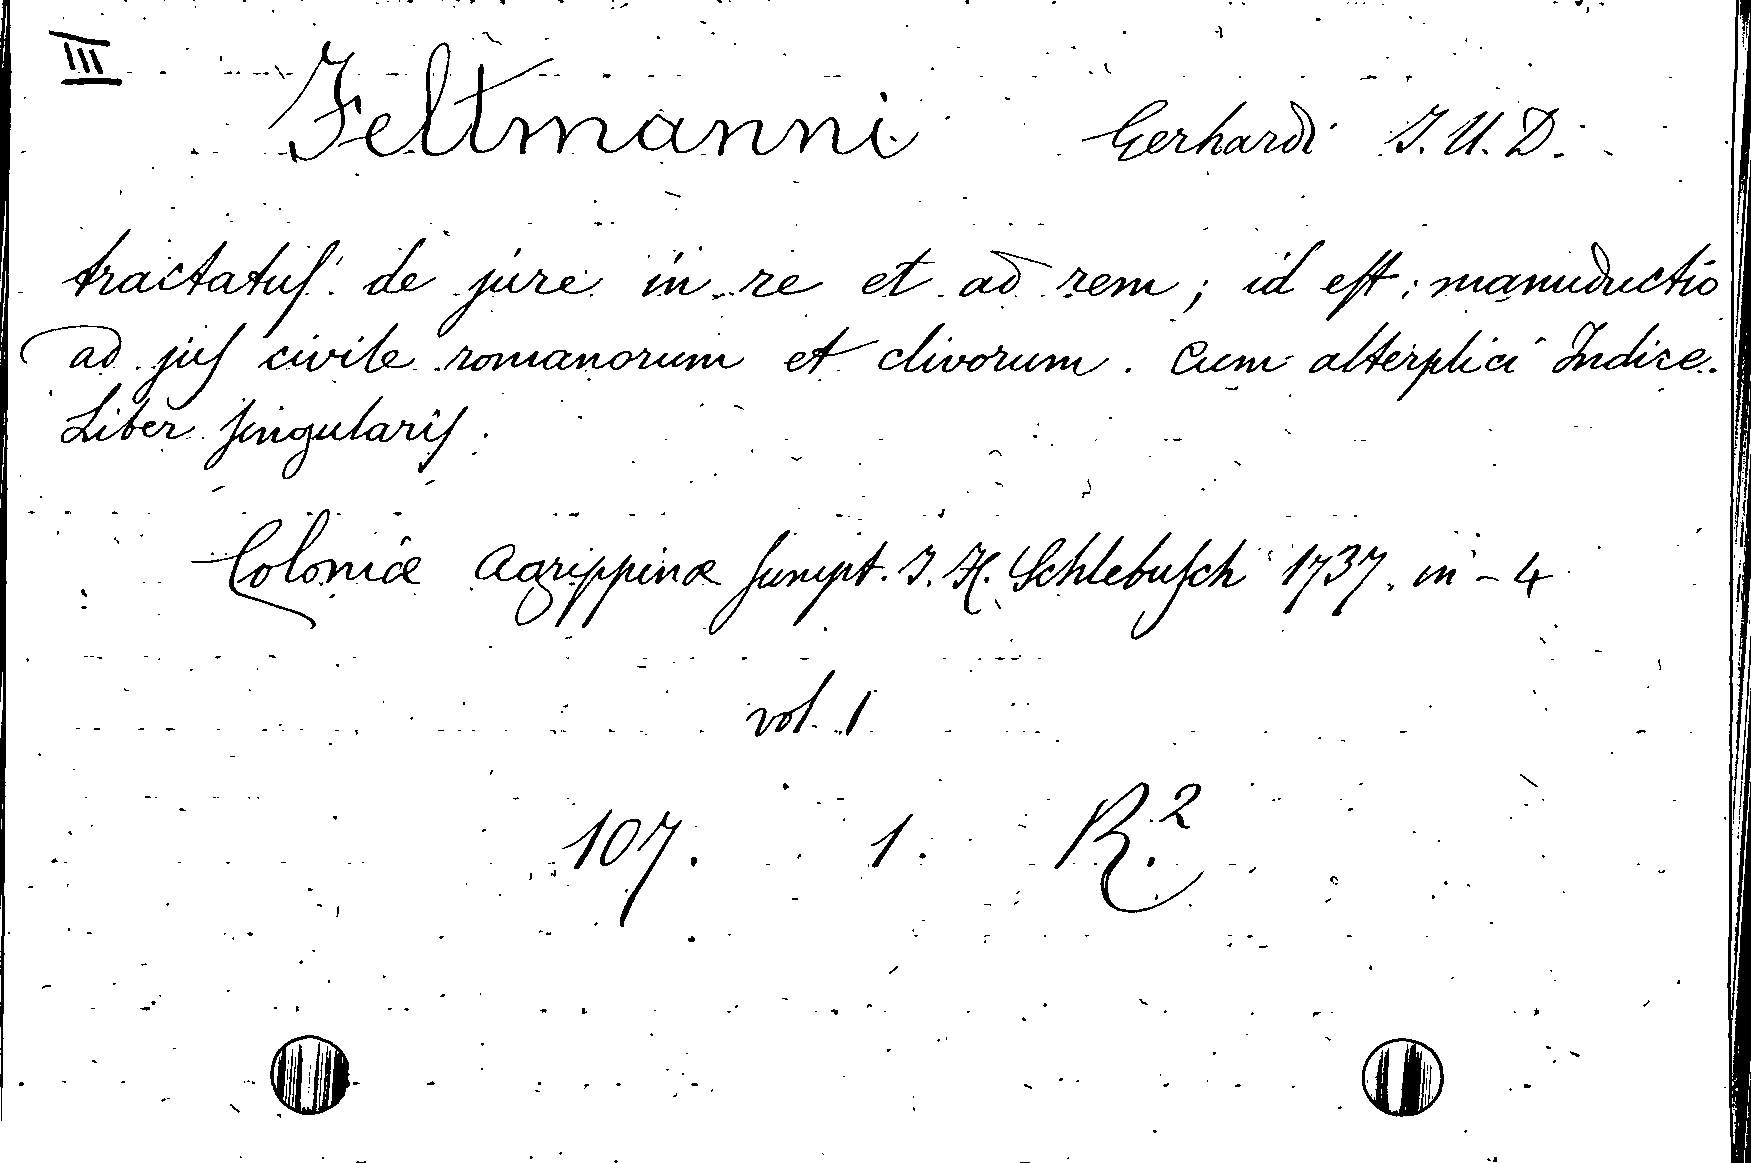 III
Feltmanni Gerhardi J. U. D.
tractatuſ de jure in re et ad rem; id eſt: manuductio
ad juſ civile romanorum et clivorum. Cum alterplici Indice.
Liber ſingulariſ.
Coloniæ Agrippinæ ſumpt. J. H. Schlebuſch 1737. in-4
vol. 1
107. 1. R.²